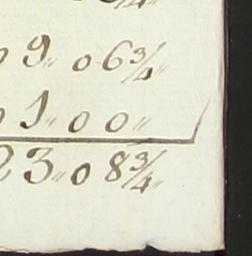 9〃 06¾〃
1〃 00〃
23〃 08¾〃